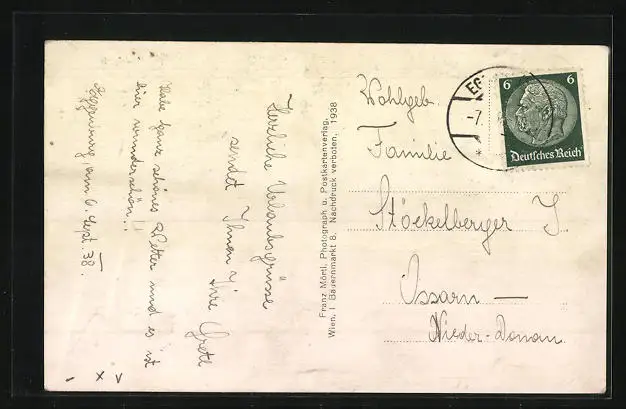 Herzliche Urlaubsgrüsse
sendet Ihnen
Ihre Gretl
Habe ganz schönes Wetter und es ist
hier wunderschön!!
Eggenburg am 6. Sept. 38.
Franz Mörtl, Photograph u. Postkartenverlag,
Wien, I Bauernmarkt 8, Nachdruck verboten, 1938
Wohlgeb.
Familie
Stöckelberger J
Ossarn —
Nieder-Donau.
EG
-7.
6 6
Deutsches Reich